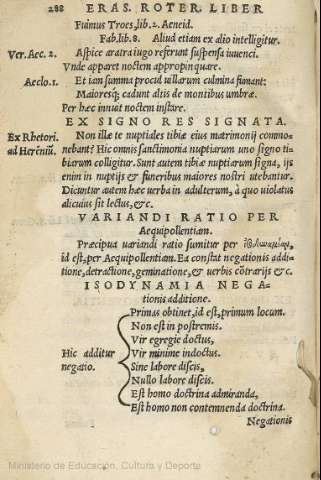 288 ERAS. ROTER. LIBER
Fuimus Troes, lib. 2. Aeneid.
Fab. lib. 8. Aliud etiam ex alio intelligitur.
Ver. Acc. 2. Aspice aratra iugo referunt suspensa iuuenci.
Vnde apparet noctem appropinquare.
Aeclo. 1. Et iam summa procul uillarum culmina fumant:
Maioresq́; cadunt altis de montibus umbræ.
Per hæc innuit noctem instare.
EX SIGNO RES SIGNATA.
Ex Rhetori. Non illæ te nuptiales tibiæ eius matrimonij commo=
ad Heréniũ. nebant? Hic omnis sanctimonia nuptiarum uno signo ti=
biarum colligitur. Sunt autem tibiæ nuptiarum signa, ijs
enim in nuptijs & funeribus maiores nostri utebantur.
Dicuntur autem hæc uerba in adulterum, à quo uiolatus
alicuius sit lectus, &c.
VARIANDI RATIO PER
Aequipollentiam.
Præcipua uariandi ratio sumitur per
id est, per Aequipollentiam. Ea constat negationis addi=
tione, detractione, geminatione, & uerbis cõtrarijs &c.
ISODYNAMIA NEGA=
tionis additione.
Primas obtinet, id est, primum locum.
Non est in postremis.
Vir egregie doctus,
Hic additur Vir minime indoctus.
negatio. Sine labore discis,
Nullo labore discis.
Est homo doctrina admiranda,
Est homo non contemnenda doctrina.
Negationis
Ministerio de Educación, Cultura y Deporte